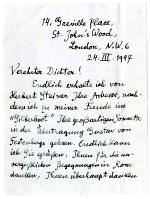 14, Greville Place,
St. John's Wood,
London, N.W. 6
24. III. 1947
Verehrter Dichter!
Endlich erhalte ich von
Herbert Steiner Ihre Adresse, nach-
dem ich in meiner Freude im
die großartigen Sonette
in der Übertragung Gustav von
Festenbergs gelesen. Endlich kann
ich Sie grüßen, Ihnen für die un-
vergeßlichen Begegnungen in Rom
danken, Ihnen überhaupt danken